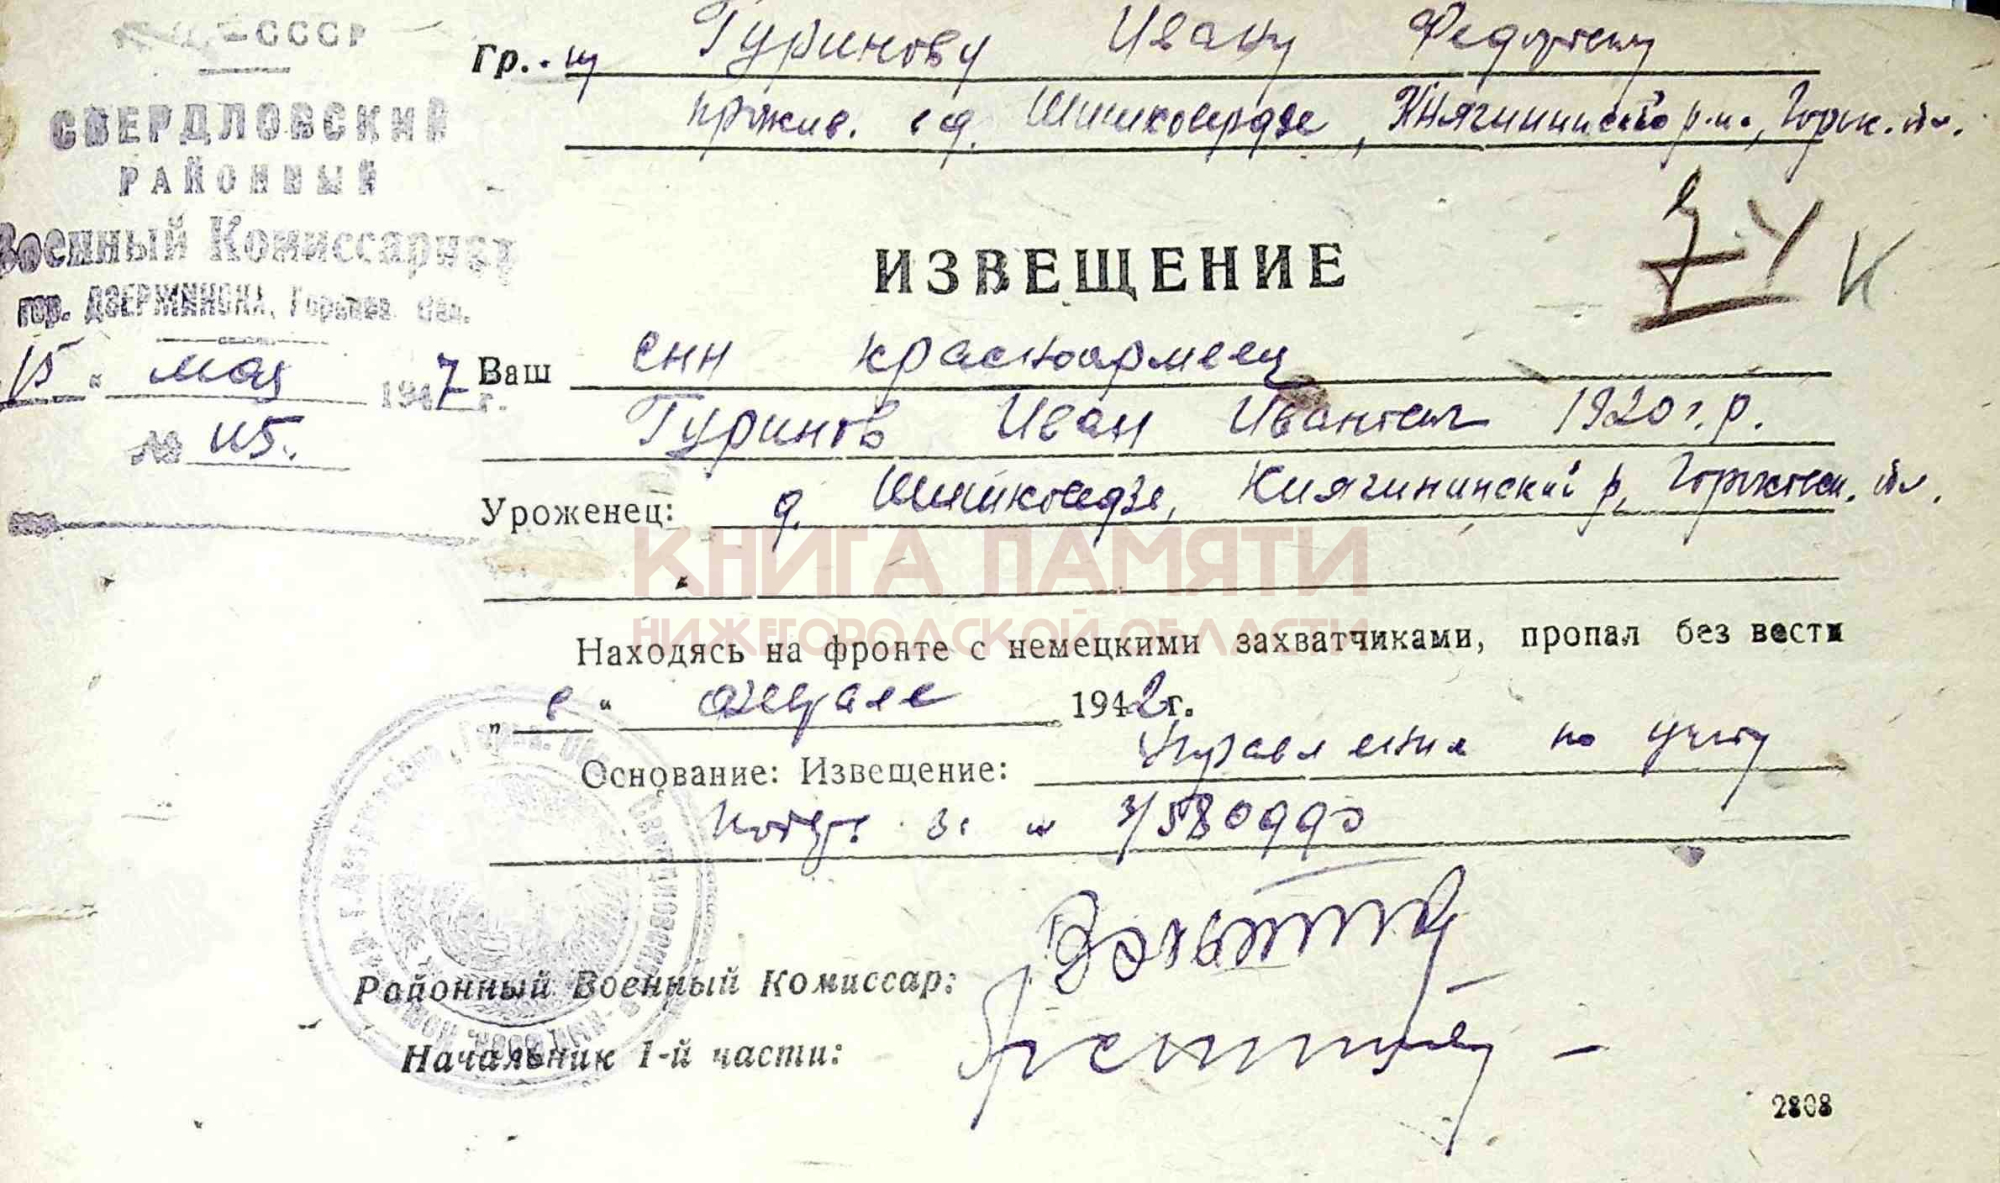 СССР
СВЕРДЛОВСКИЙ
РАЙОННЫЙ
Военный Комиссариат
гор. ДЗЕРЖИНСКА, Горьков. обл.
15 " мая 1947 г.
№ 115.
Гр.-ну Гуринову Ивану Федоровичу
прожив. в д. , Княгининского р-на, Горьк. обл.
ИЗВЕЩЕНИЕ
Ваш сын красноармеец
Гуринов Иван Иванович 1920 г.р.
Уроженец: д. , Княгининский р, Горьковск. обл.
КНИГА ПАМЯТИ
НИЖЕГОРОДСКОЙ ОБЛАСТИ
Находясь на фронте с немецкими захватчиками, пропал без вести
" в " феврале 1942 г.
Основание: Извещение: Управления по учету
за № 3/580990
Районный Военный Комиссар:
Начальник 1-й части:
2808